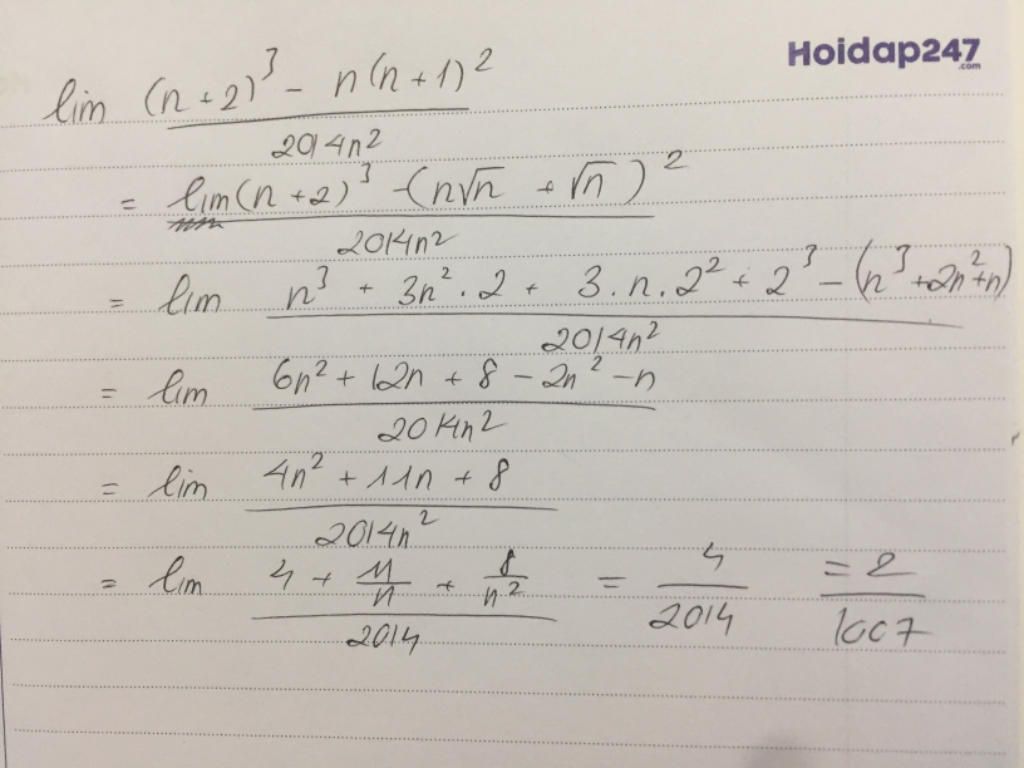 Hoidap247
.com
lim (n+2)³ - n(n+1)² / 2014n²
= lim (n+2)³ - (n√n + √n)² / 2014n²
= lim n³ + 3n².2 + 3.n.2² + 2³ - (n³+2n²+n) / 2014n²
= lim 6n² + 12n + 8 - 2n² - n / 2014n²
= lim 4n² + 11n + 8 / 2014n²
= lim 4 + 11/n + 8/n² / 2014 = 4/2014 = 2/1007